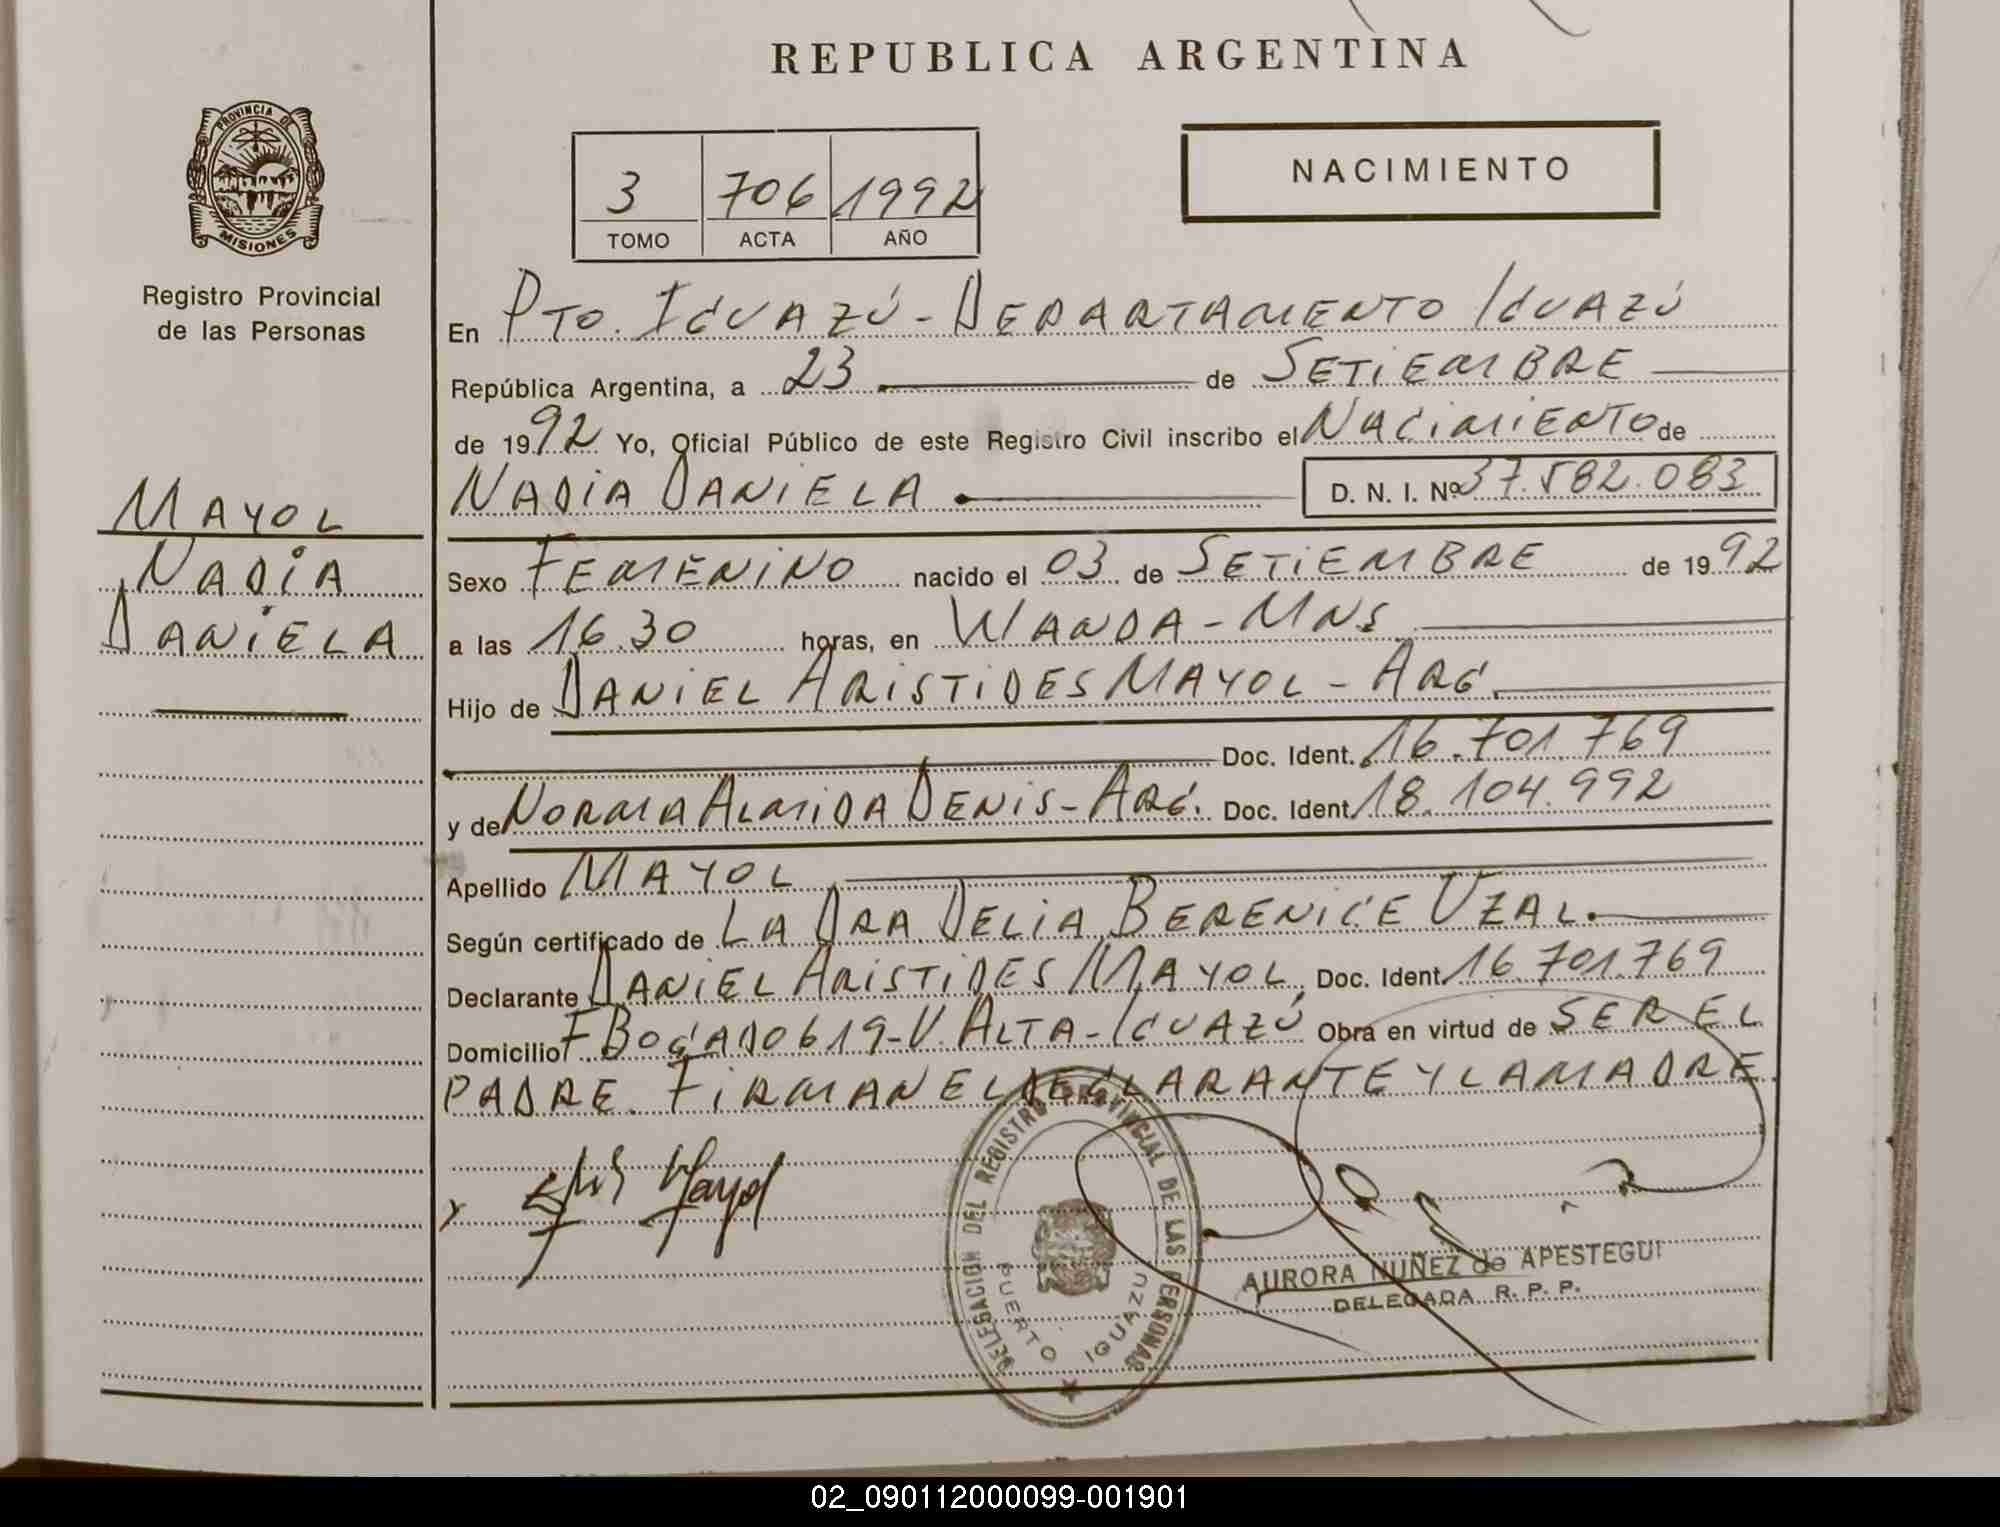 REPUBLICA ARGENTINA
PROVINCIA DE
MISIONES
Registro Provincial
de las Personas
3 706 1992
TOMO ACTA AÑO
NACIMIENTO
En PTO. IGUAZÚ - DEPARTAMENTO IGUAZÚ
República Argentina, a 23 de SETIEMBRE
de 1992 Yo, Oficial Público de este Registro Civil inscribo el NACIMIENTO de
NADIA DANIELA D. N. I. Nº 37.582.083
MAYOL
NADIA
DANIELA
Sexo FEMENINO nacido el 03 de SETIEMBRE de 1992
a las 16.30 horas, en WANDA - MNS
Hijo de DANIEL ARISTIDES MAYOL - ARG.
Doc. Ident. 16.701.769
y de NORMA ALMIDA DENIS - ARG. Doc. Ident. 18.104.992
Apellido MAYOL
Según certificado de LA DRA DELIA BERENICE UZAL.
Declarante DANIEL ARISTIDES MAYOL, Doc. Ident. 16.701.769
Domicilio F BOGADO 619 - V. ALTA - IGUAZÚ Obra en virtud de SER EL
PADRE. FIRMAN EL DECLARANTE Y LA MADRE.
Mayol
DELEGACION DEL REGISTRO PROVINCIAL DE LAS PERSONAS
PUERTO IGUAZU
AURORA NUÑEZ de APESTEGUI
DELEGADA R. P. P.
02_090112000099-001901